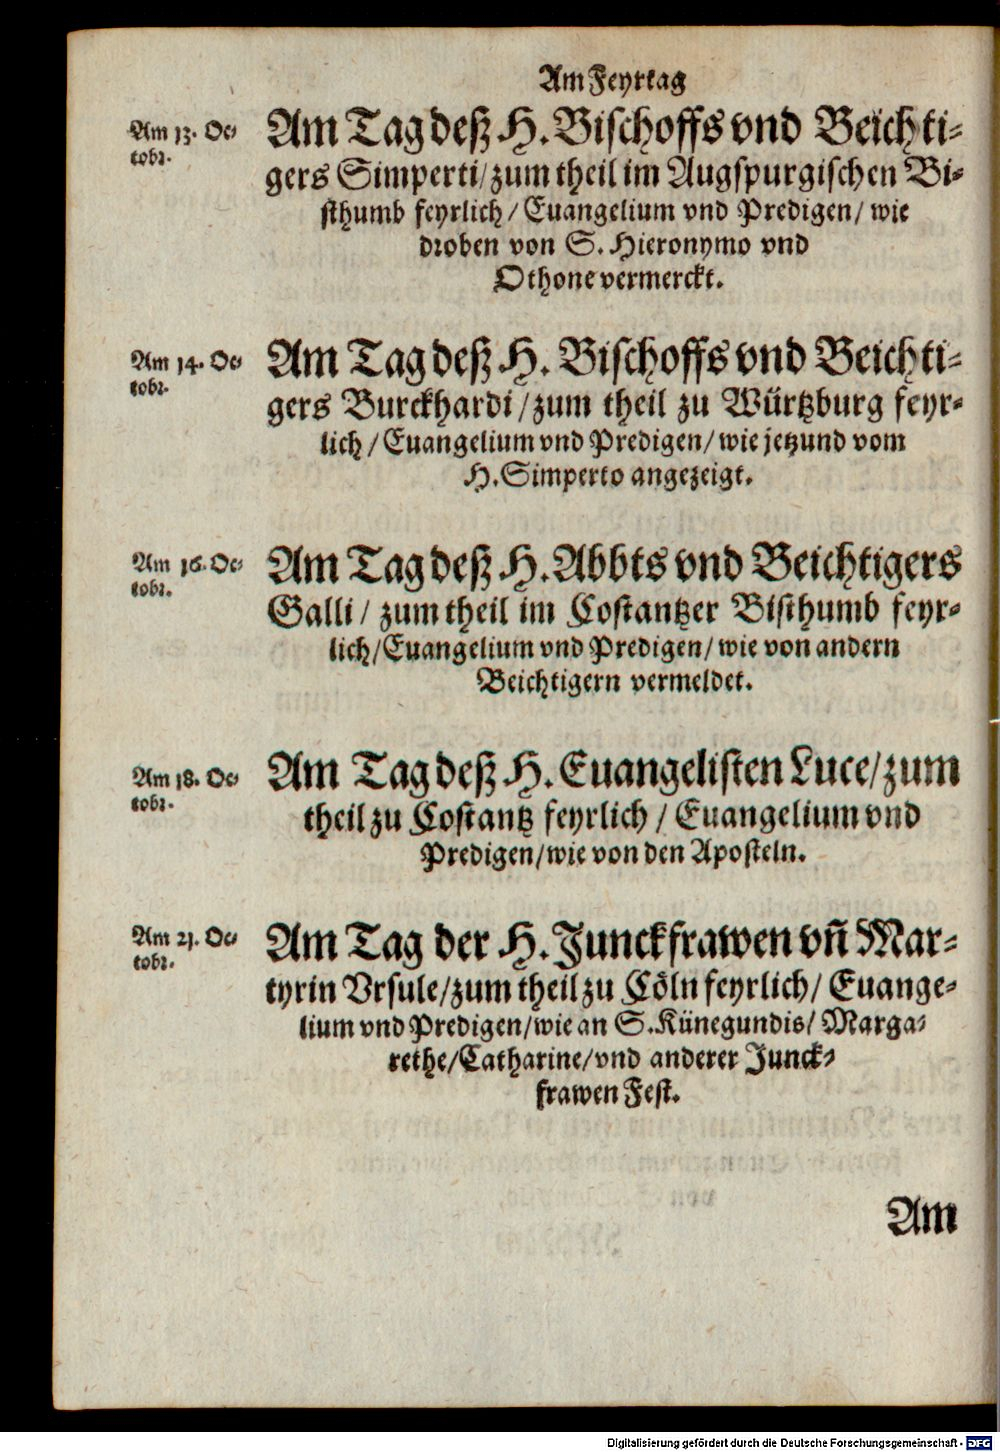 Am Feyrtag
Am 13. Oc-
tobr.
Am Tag deß H. Bischoffs vnd Beichti-
gers Simperti/ zum theil im Augspurgischen Bi-
sthumb feyrlich / Euangelium vnd Predigen/ wie
droben von S. Hieronymo vnd
Othone vermerckt.
Am 14. Oc-
tobr.
Am Tag deß H. Bischoffs vnd Beichti-
gers Burckhardi / zum theil zu Würtzburg feyr-
lich / Euangelium vnd Predigen/ wie jetzund vom
H. Simperto angezeigt.
Am 16. Oc-
tobr.
Am Tag deß H. Abbts vnd Beichtigers
Galli / zum theil im Costantzer Bisthumb feyr-
lich/ Euangelium vnd Predigen/ wie von andern
Beichtigern vermeldet.
Am 18. Oc-
tobr.
Am Tag deß H. Euangelisten Luce/ zum
theil zu Costantz feyrlich / Euangelium vnd
Predigen/ wie von den Aposteln.
Am 21. Oc-
tobr.
Am Tag der H. Junckfrawen vñ Mar-
tyrin Vrsule/ zum theil zu Cöln feyrlich/ Euange-
lium vnd Predigen/ wie an S. Künegundis/ Marga-
rethe/ Catharine/ vnd anderer Junck-
frawen Fest.
Am
Digitalisierung gefördert durch die Deutsche Forschungsgemeinschaft - DFG